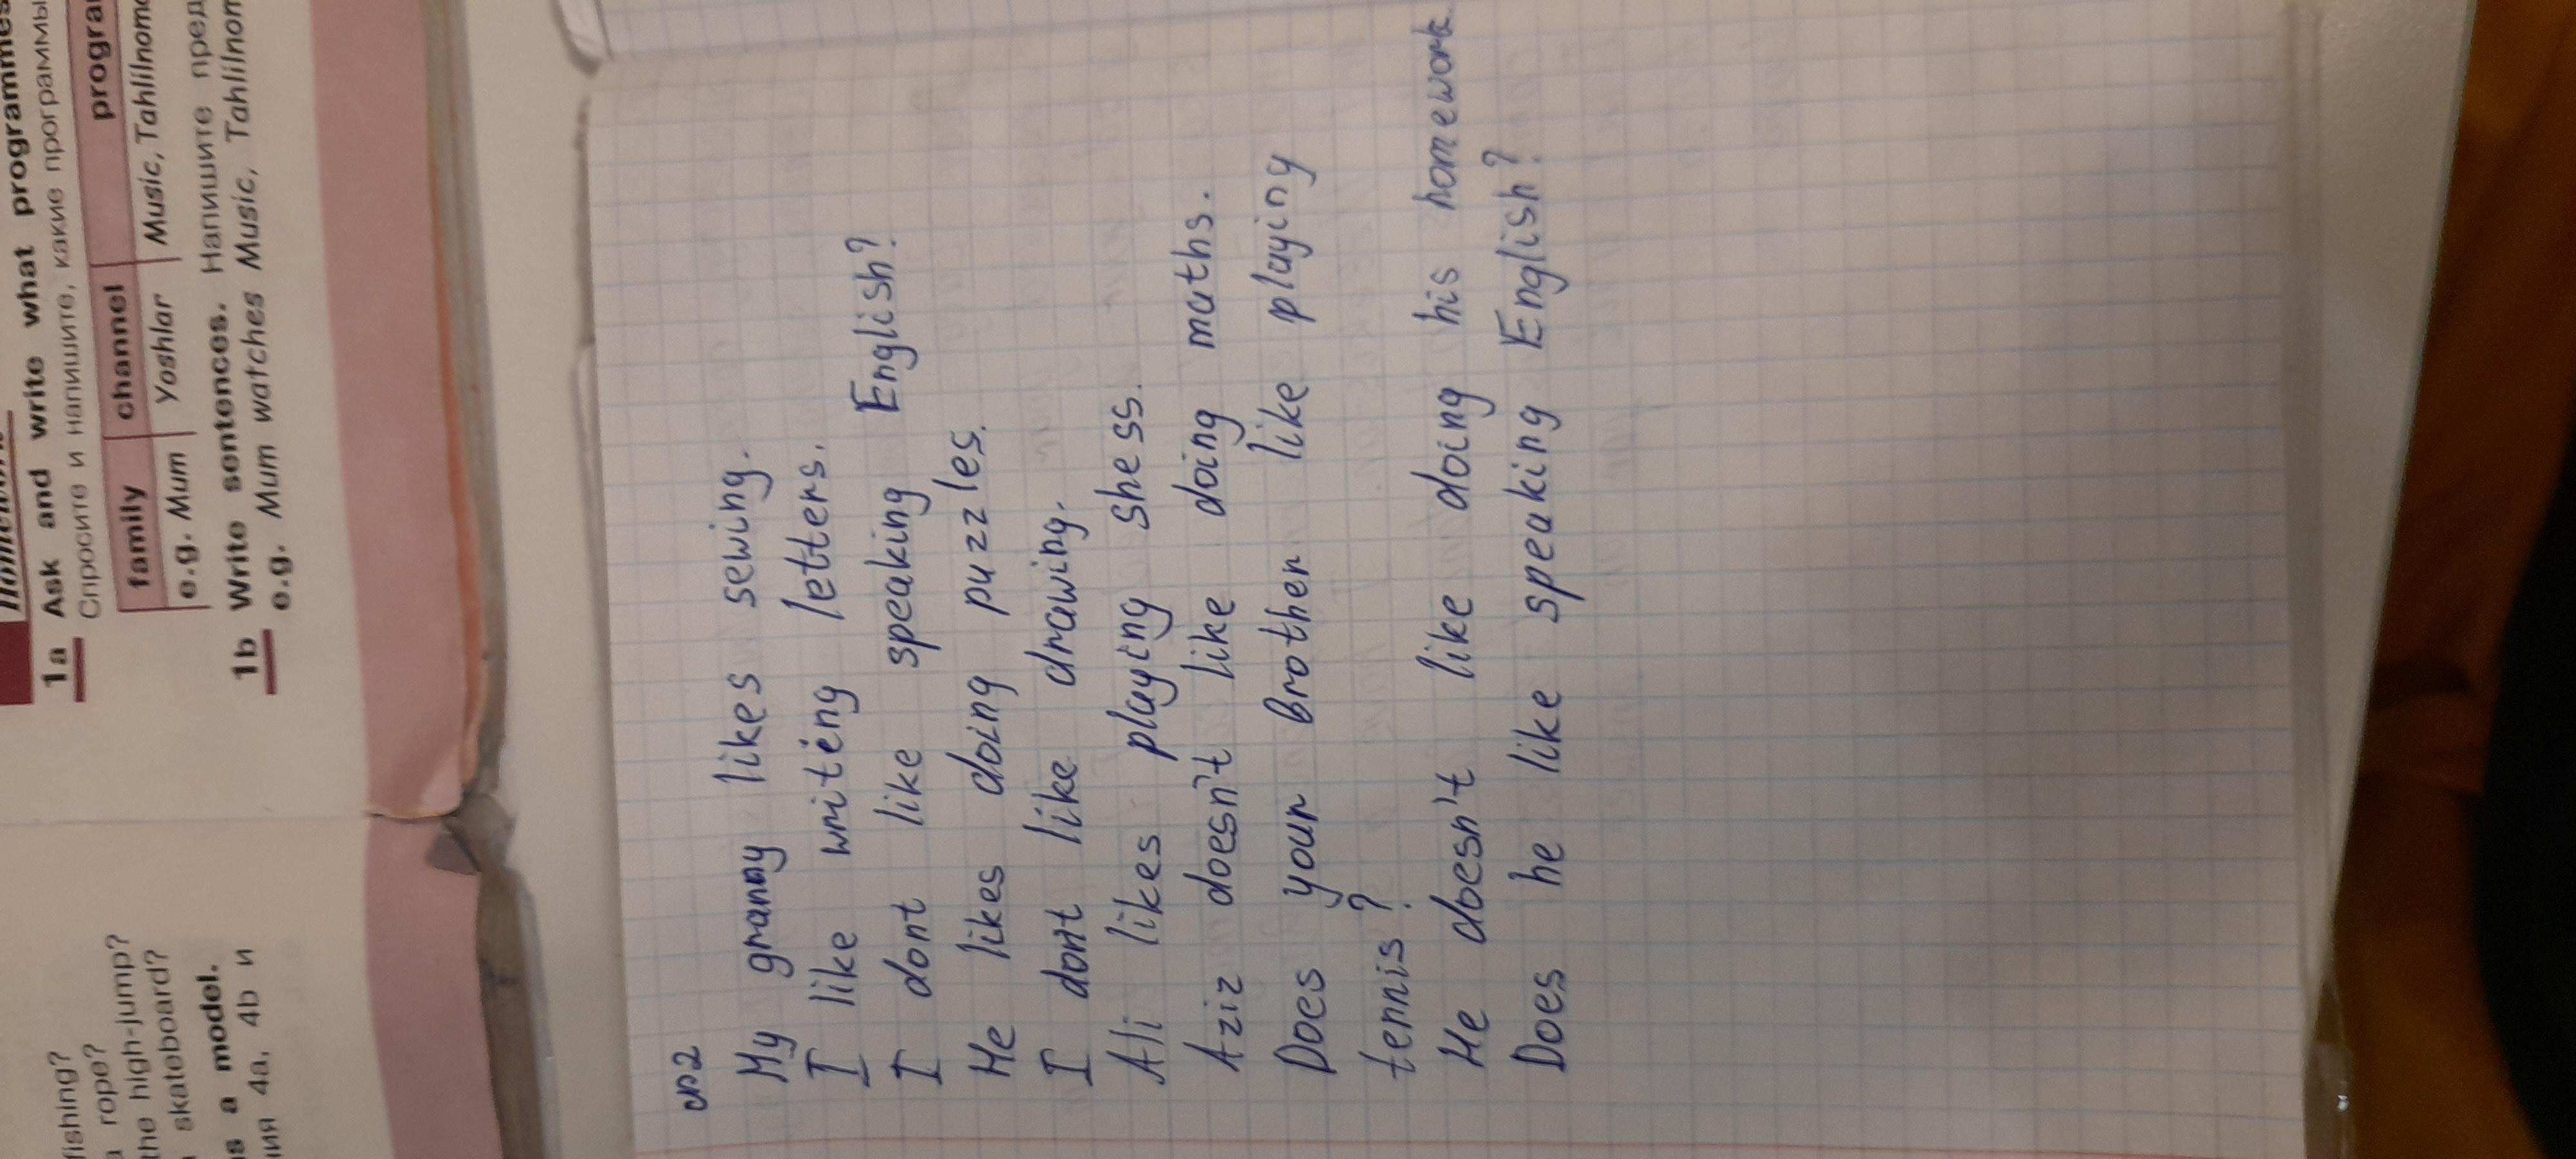 fishing?
rope?
the high-jump?
skateboard?
s a model.
ния 4a, 4b и
1a Ask and write what programmes
Спросите и напишите, какие программы
family channel progra
e.g. Mum Yoshlar Music, Tahlilnoma
1b Write sentences. Напишите пред
e.g. Mum watches Music, Tahlilnom
№2
My granny likes sewing.
I like writing letters.
I dont like speaking English?
He likes doing puzzles.
I don't like drawing.
Ali likes playing shess.
Aziz doesn't like doing maths.
Does your brother like playing
tennis?
He doesn't like doing his homework.
Does he like speaking English?